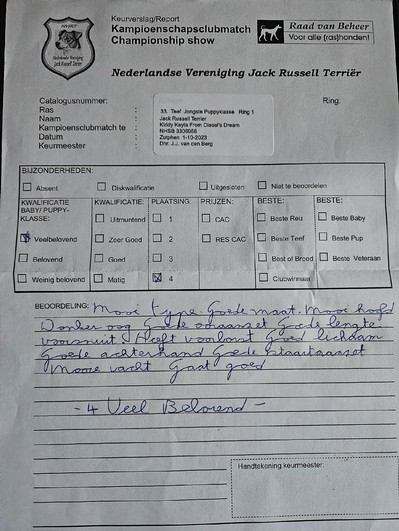 Keurverslag/Report
Kampioenschapsclubmatch
Championship show
Raad van Beheer
Voor alle (ras)honden!
Nederlandse Vereniging Jack Russell Terriër
Catalogusnummer: 33. Teef Jongste Puppyklasse Ring 1 Ring:
Ras Jack Russell Terrier
Naam Kiddy Kayla From Diesel's Dream
Kampioensclubmatch te : NHSB
Datum : Zutphen 1-10-2023
Keurmeester : Dhr. J.J. van den Berg
BIJZONDERHEDEN:
Absent Diskwalificatie Uitgesloten Niet te beoordelen
KWALIFICATIE BABY/PUPPY-KLASSE: KWALIFICATIE: PLAATSING: PRIJZEN: BESTE: BESTE:
Uitmuntend 1 CAC Beste Reu Beste Baby
Veelbelovend Zeer Goed 2 RES CAC Beste Teef Beste Pup
Belovend Goed 3 Best of Breed Beste Veteraan
Weinig belovend Matig 4 Clubwinnaar
BEOORDELING: Mooi type Goede maat. Mooi hoofd
Donker oog Goede ooraanzet Goede lengte
voorsnuit Heeft voorborst Goed lichaam
Goede achterhand Goede staartaanzet
Mooie vacht Gaat goed
- 4 Veel Belovend -
Handtekening keurmeester: